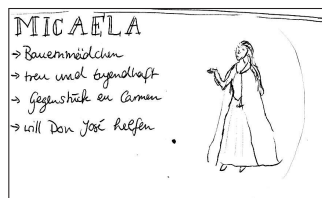 MICAELA
→ Bauernmädchen
→ treu und tugendhaft
→ Gegenstück zu Carmen
→ will Don José helfen